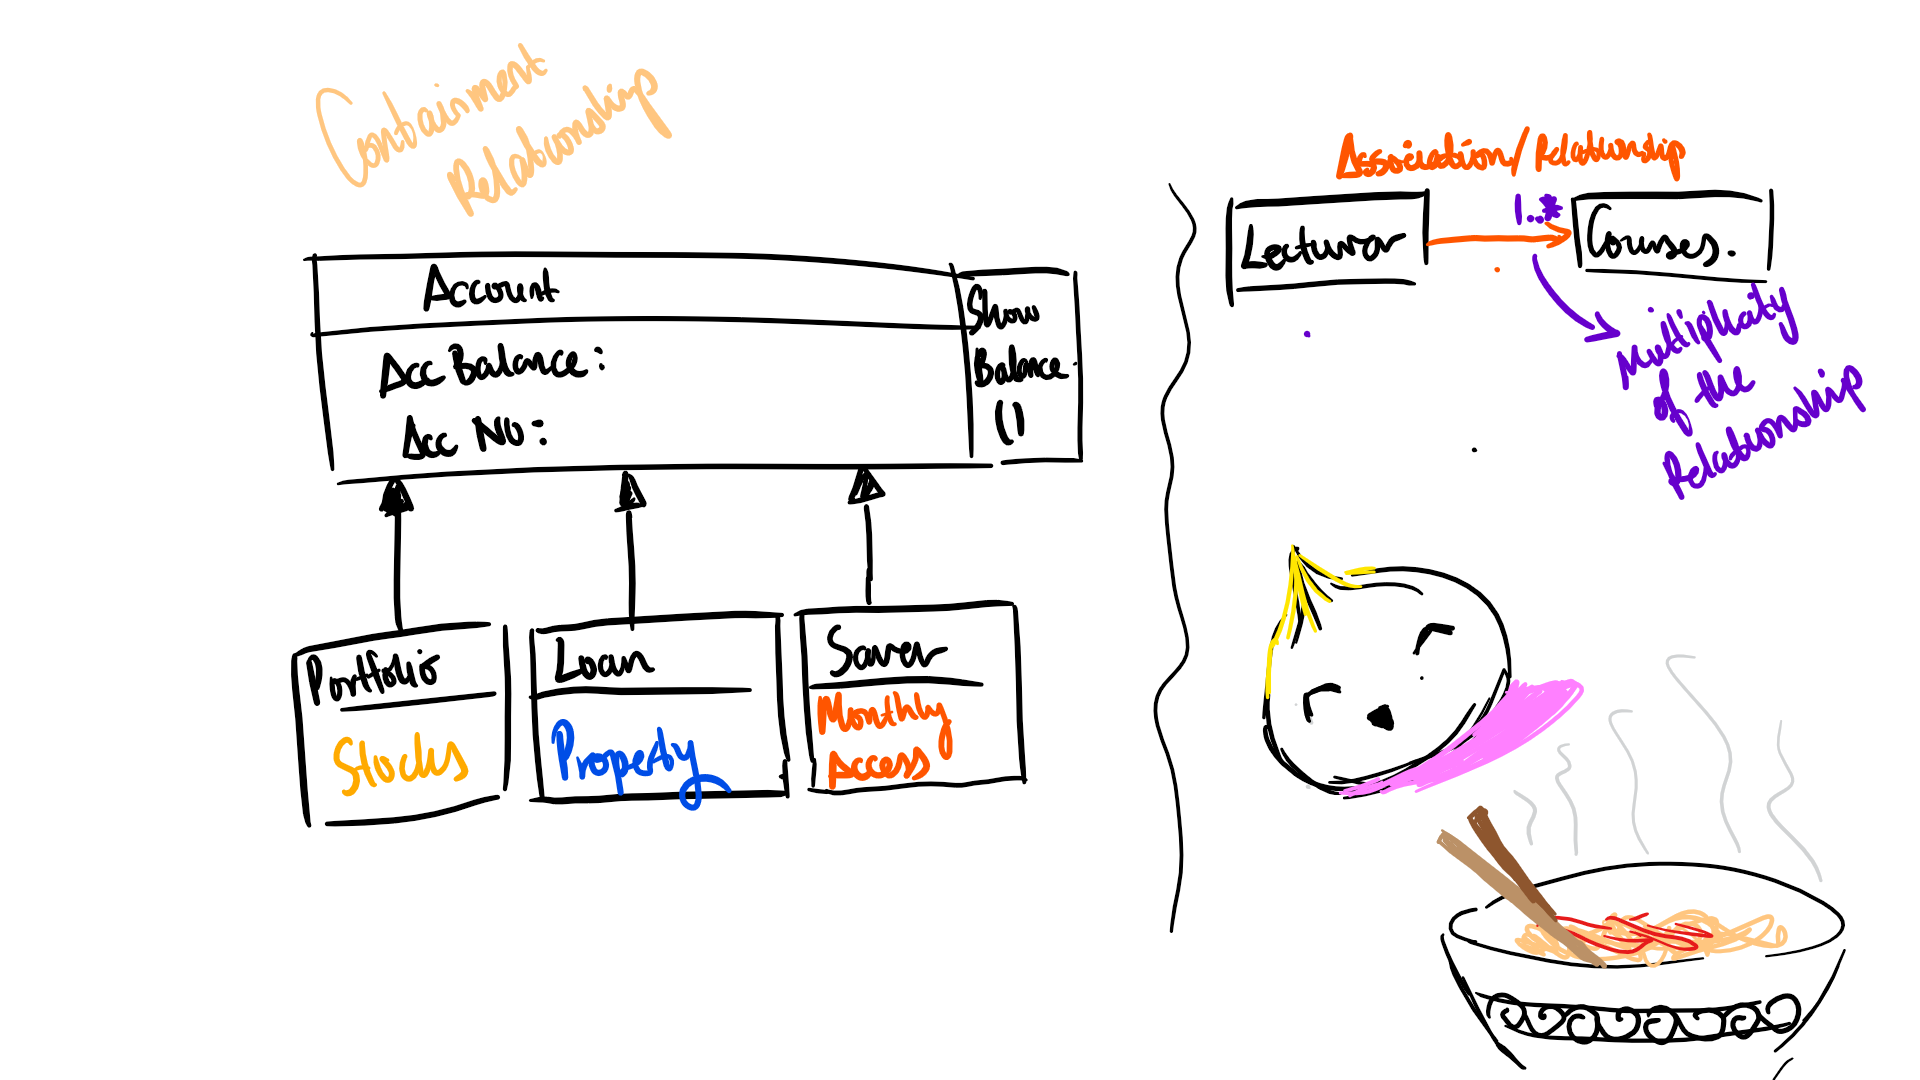 Containment
Relationship
Account
Acc Balance:
Acc No:
Show
Balance
()
Portfolio
Stocks
Loan
Property
Saver
Monthly
Access
Association/Relationship
Lecturor
1..*
Courses.
Multiplicaty
of the
Relationship